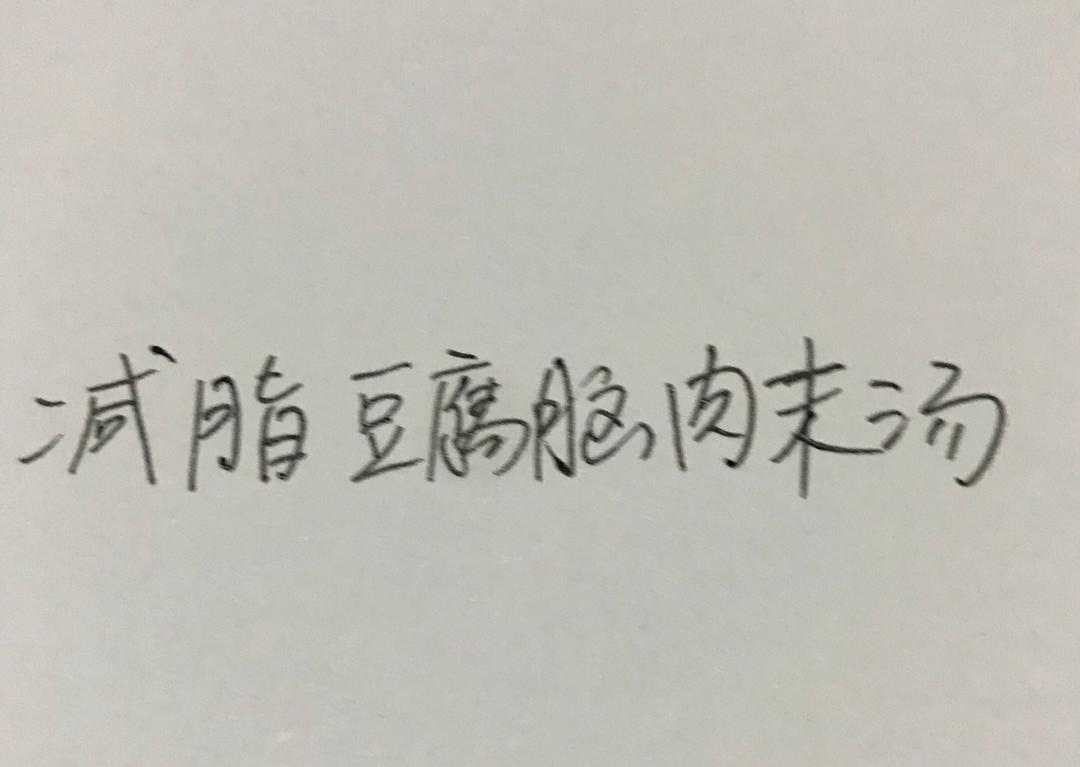 减脂豆腐脑肉末汤